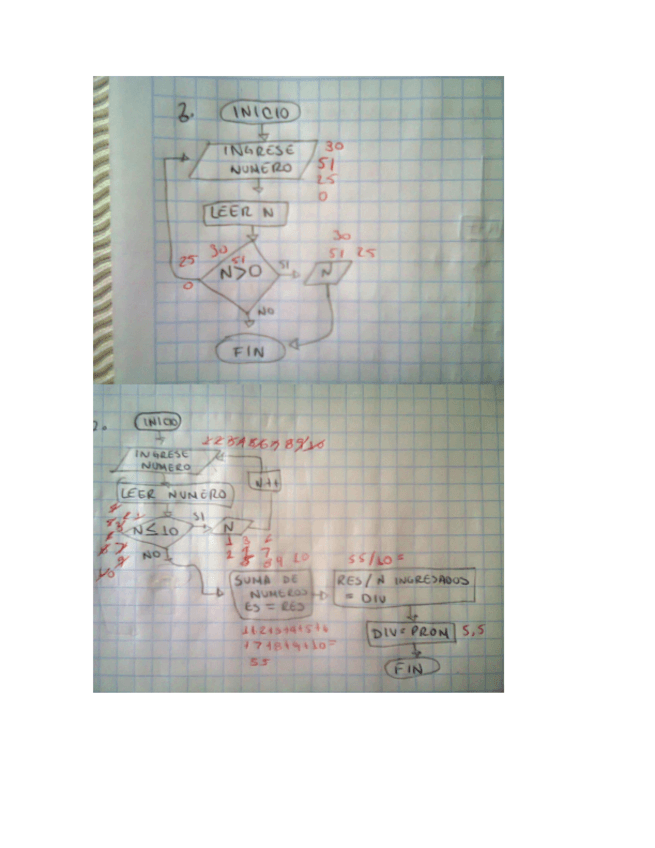 3.
INICIO
INGRESE
NUMERO
30
51
25
0
LEER N
30
51 25
25 30 51
N>0
SI
N
0
NO
FIN
INICIO
INGRESE
NUMERO
N+1
LEER NUMERO
SI
N≤10
N
NO
SUMA DE
NUMEROS
ES = RES
55/10=
RES/N INGRESADOS
= DIV
1+2+3+4+5+6
+7+8+9+10=
55
DIV=PROM
5,5
FIN